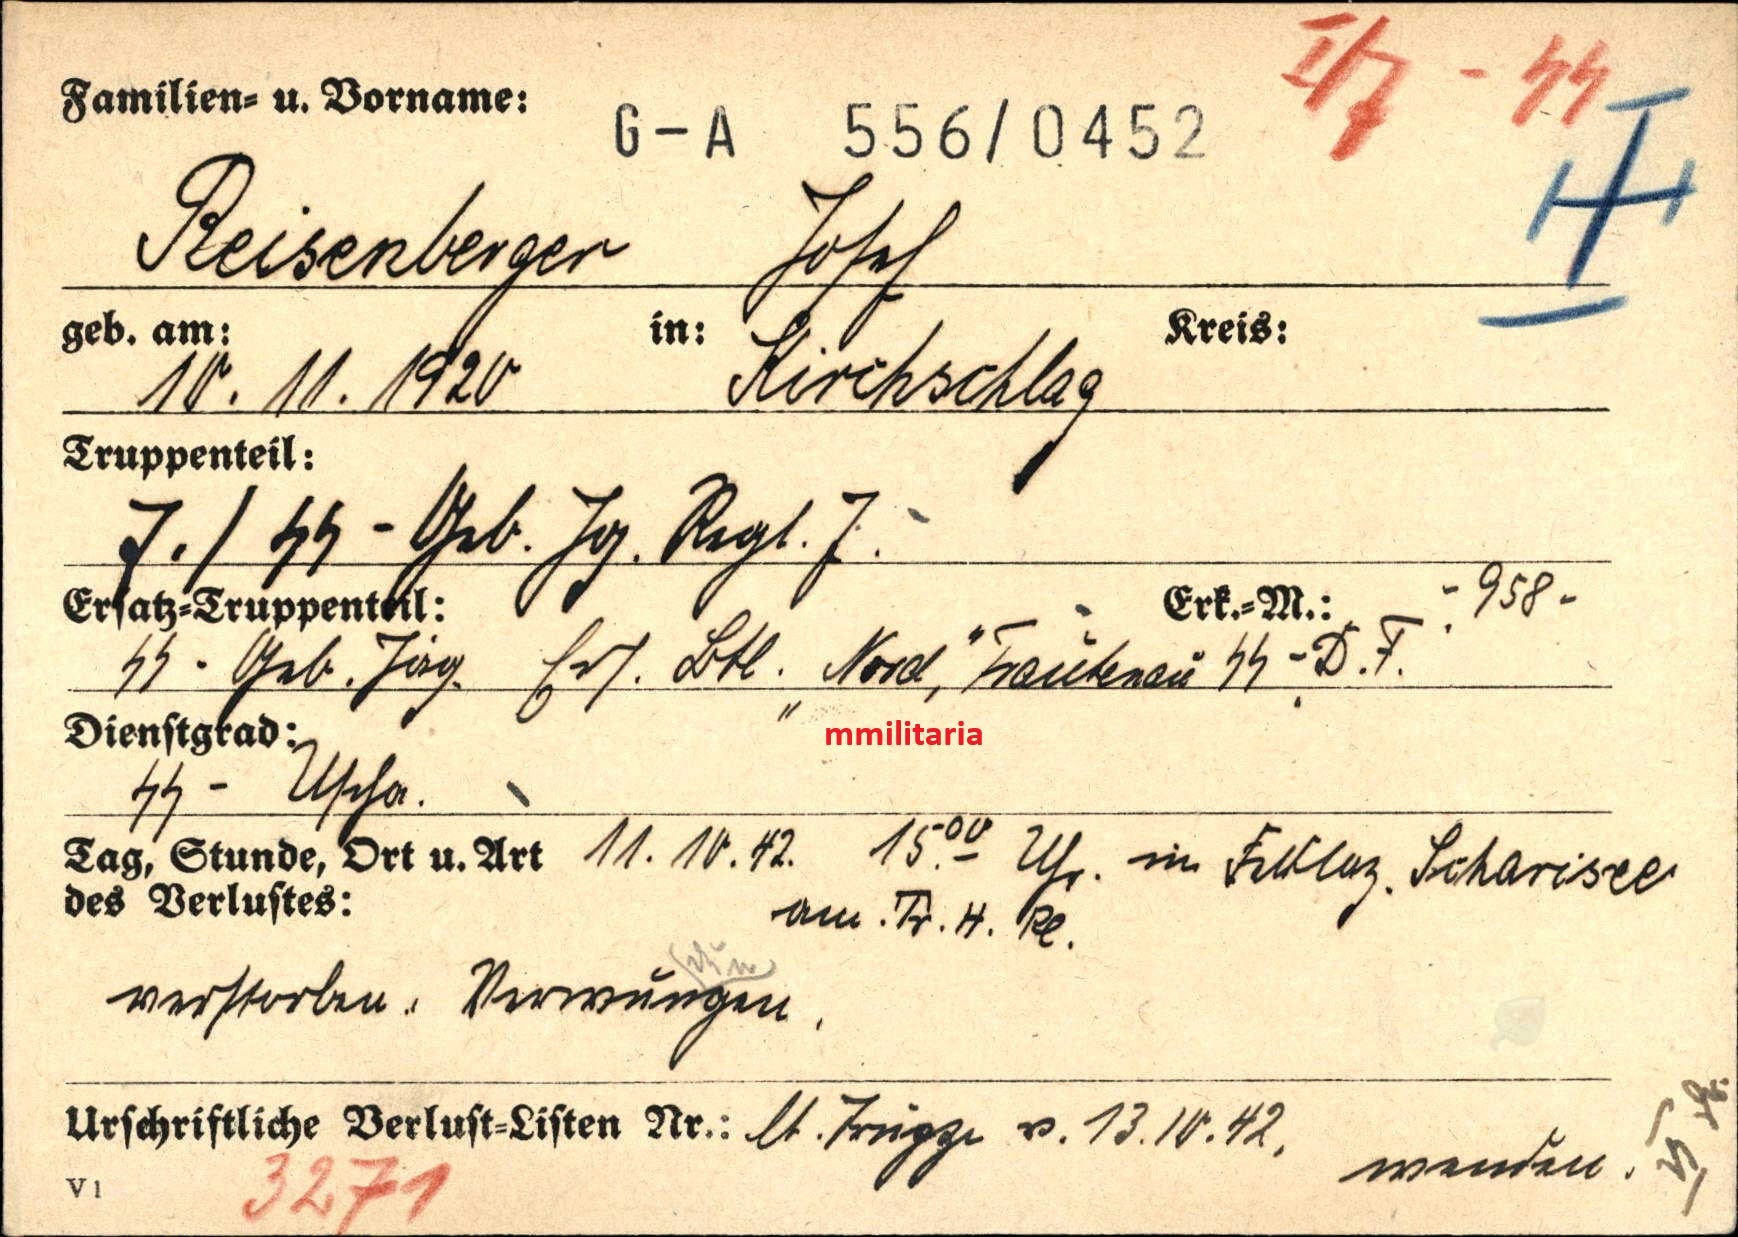 I/7 - SS
Familien- u. Vorname:
G-A 556/0452
Reisenberger Josef
geb. am: in: Kreis:
10. 11. 1920 Kirchschlag
Truppenteil:
7./ SS - Geb. Jg. Regt. 7.
Ersatz-Truppenteil: Erk.-M.: - 958 -
SS - Geb. Jäg. Ers. Btl. „Nord," Trautenau SS - D.F.
mmilitaria
Dienstgrad:
SS - Uscha.
Tag, Stunde, Ort u. Art 11. 10. 42. 15.00 Uhr. in Feldlaz. Scharisee
des Verlustes: am Tr. H. Pl.
verstorben. Verwungen.
Urschriftliche Verlust-Listen Nr.: lt. Truppe v. 13.10.42.
wenden.
V1 3271